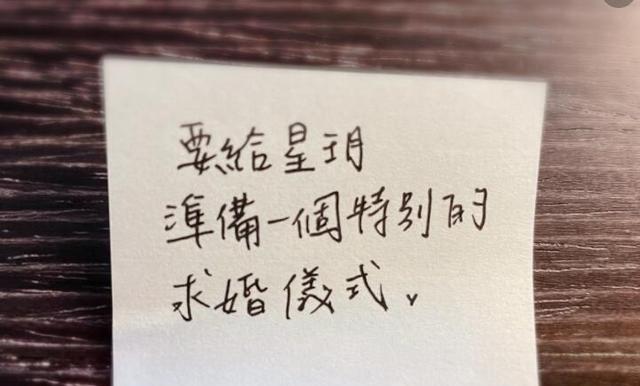 要給星玥
準備一個特別的
求婚儀式。